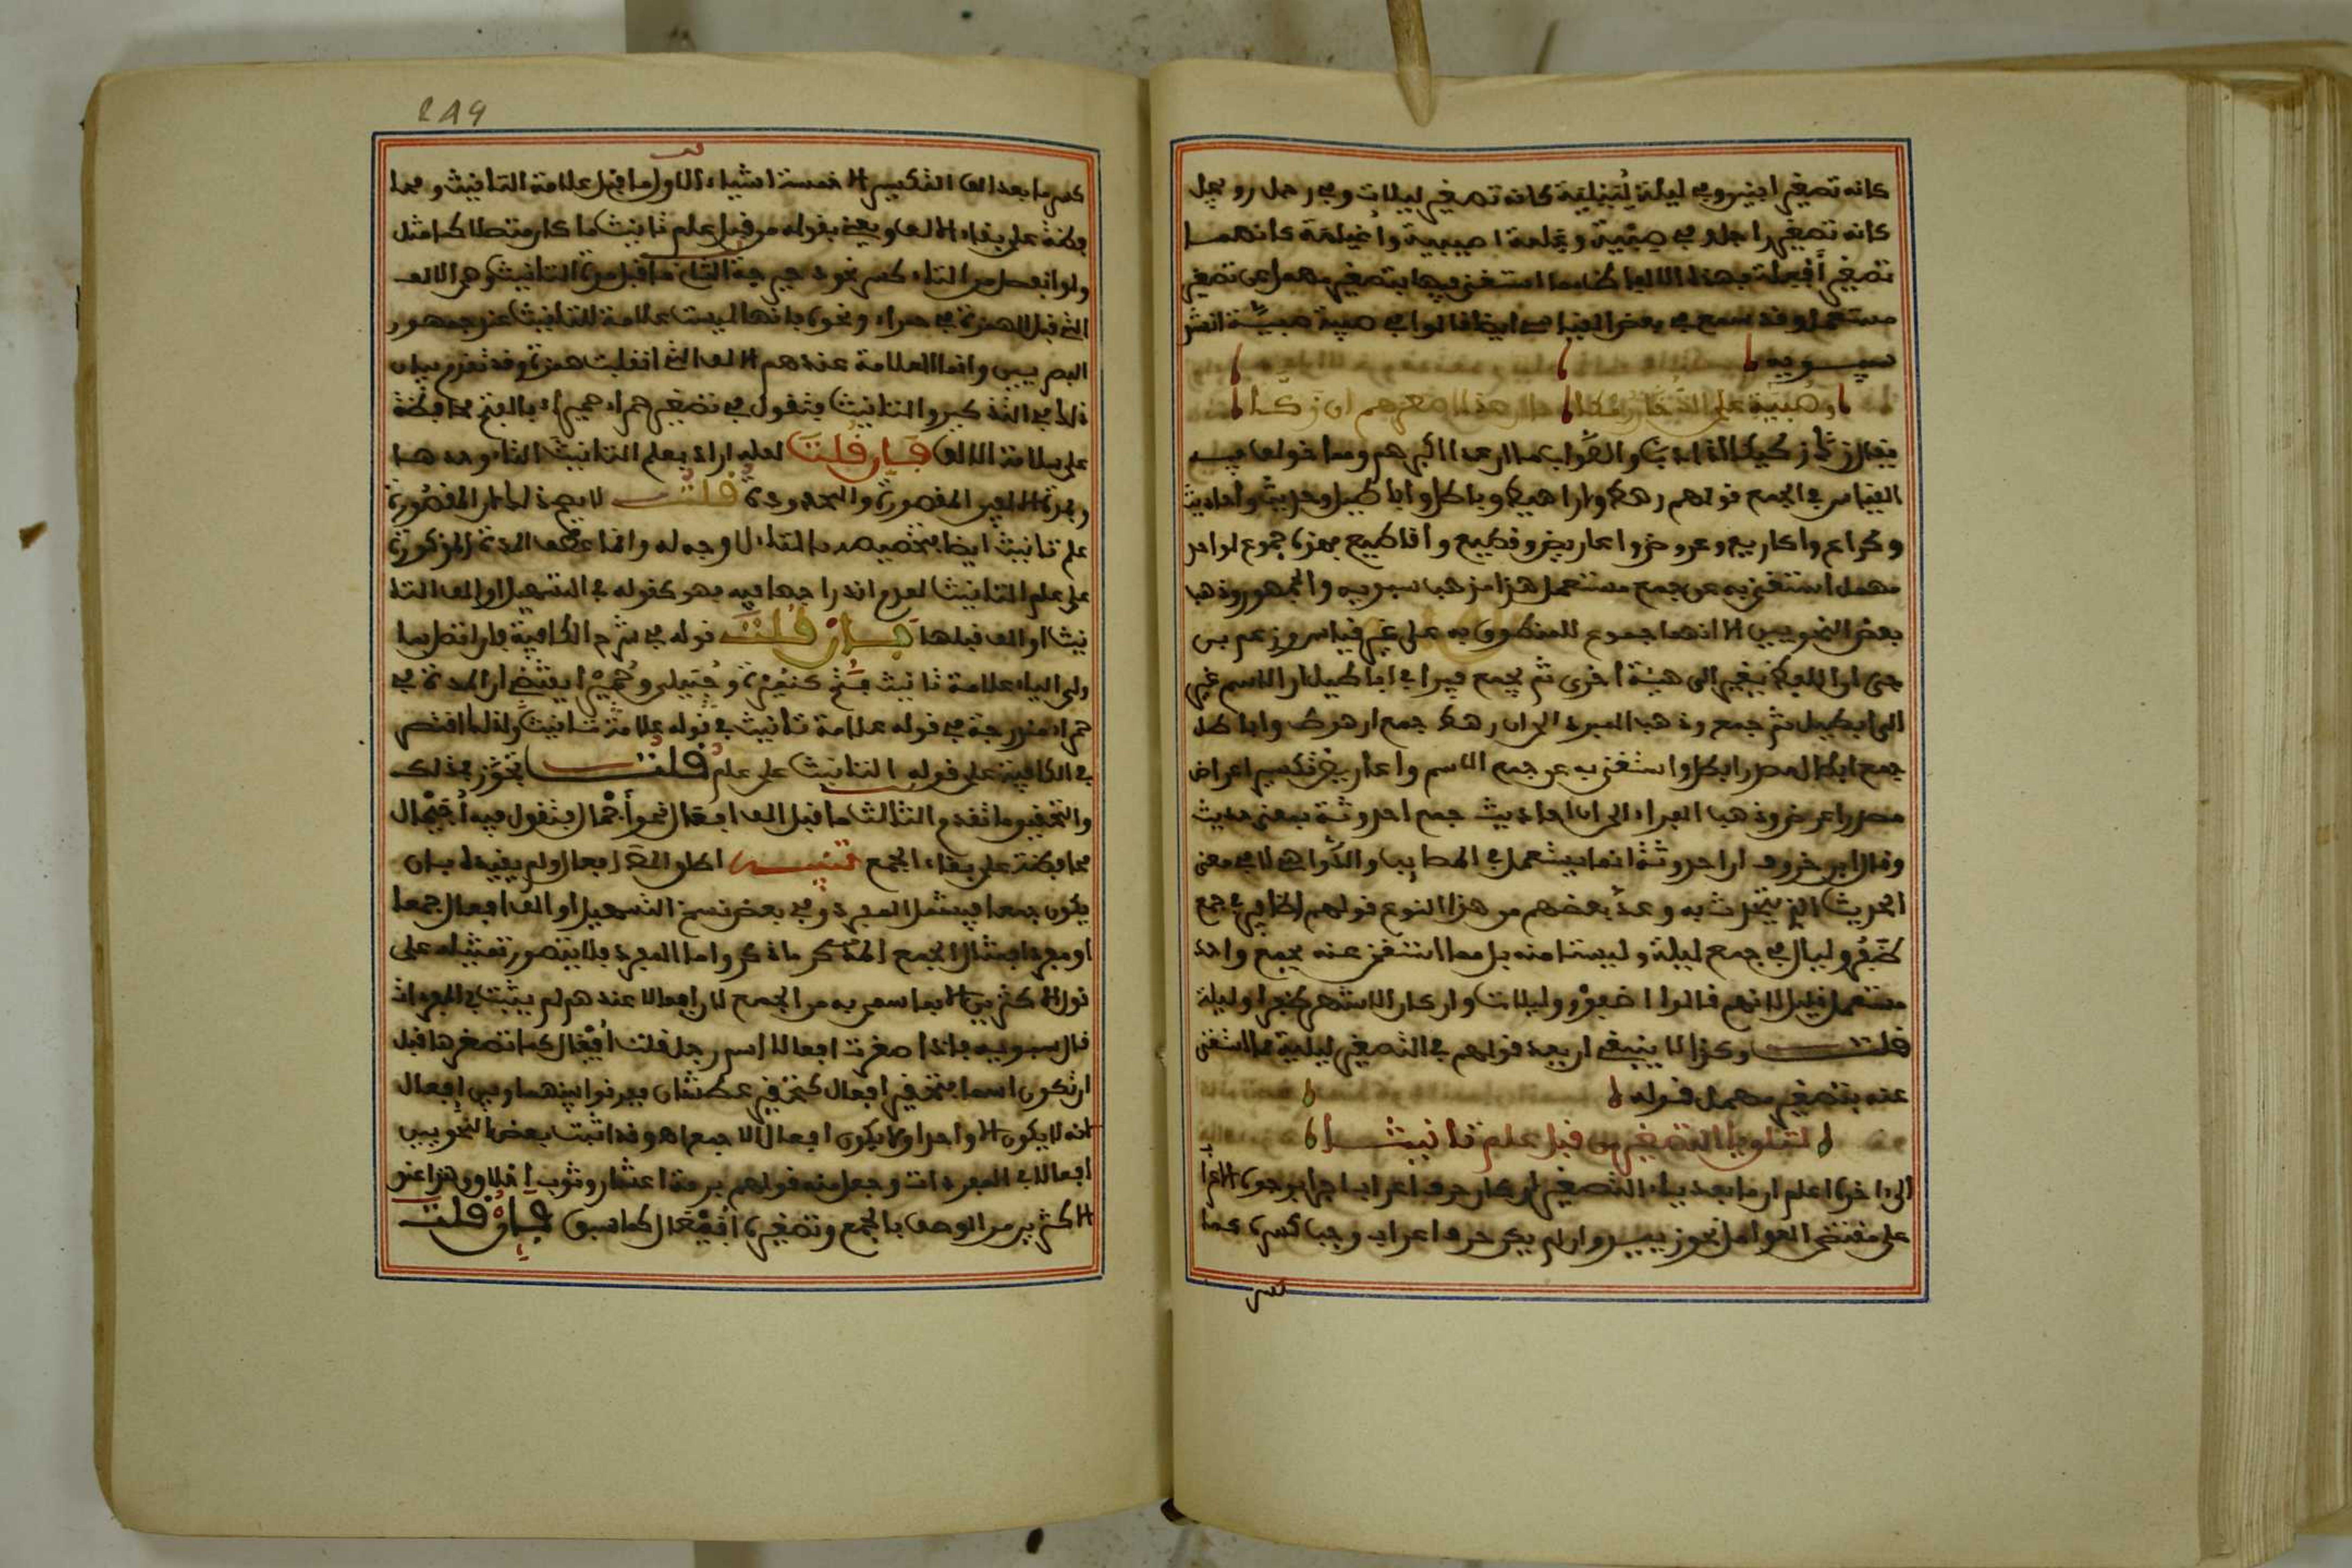 كانه تصغير ابنين وفي ليلة لُيَيْلِيَة كانه تصغير ليلات وفي رجل رويجل
كانه تصغير راجل وفي صِبْيية وغلمة اصيبية وأغيلمة كانهما
تصغير أفعلة فهذه الالفاظ مما استغنى فيها بتصغير مهمل عن تصغير
مستعمل وقد سمع في بعض القياس ايضا قالوا في صبية صبيَّة انشد
سيبويه
صُبَيَّة على الدُّخان رمكا ما ان عدا اصغرهم ان زكَّا
يقال زكَّ زكيكا اذا دب والصواب ما ان عدا اكبرهم ومما خولف فيه
القياس في الجمع قولهم رهط واراهيط وباطل واباطيل وحديث واحاديث
وكراع واكاريع وعروض واعاريض وقطيع واقاطيع فهذه جموع لواحد
مهمل استغني به عن جمع مستعمل هذا مذهب سيبويه والجمهور وذهب
بعض النحويين الى انها جموع للمنطوق به على غير قياس وزعم بن
جني ان اللفظ يغير الى هيئة اخرى ثم يجمع فيرى في اباطيل ان الاسم غير
الى ابطيل ثم جمع وذهب المبرد الى ان رهط جمع ارهط واباطل
جمع ابطال مصدر ابطل واستغنى به عن جمع الاسم واعاريض تكسير اعراض
مصدر اعرض وذهب الفراء الى ان احاديث جمع احدوثة بمعنى حديث
وقال ابن خروف ان احدوثة انما يستعمل في المصايب والدَّواهي لا في معنى
الحديث الذي يتحدث به وعدَّ بعضهم من هذا النوع قولهم اظافير في جمع
ظُفُر وليال في جمع ليلة وليستا منه بل مما استغنى عنه بجمع واحد
مستعمل قليل لانهم قالوا اظفور وليلات وان كان الاشهر ظفرا وليلة
قلت وكذا لا ينبغي ان يعد قولهم في التصغير لييلية مما استغني
عنه بتصغير مهمل قوله
لتلو يا التصغير من قبل علم تانيث
الى اخره اعلم ان ما بعد ياء التصغير ان كان حرف اعراب اجرا بوجوه الاعراب
على مقتضى العوامل نحو زييد وان لم يكن حرف اعراب وجب كسره كما
كسر
249
كسر ما بعد الف التكسير الا خمسة اشياء الاول ما قبل علامة التانيث ومحا
فظة على بقاء الالف ويعني بقوله من قبل علم تانيث ما كان متصلا كما مثل
ولو انفصل من التاء كسر نحو دحيرجة الثاني ما قبل مدة التانيث وهي الالف
التي قبل الهمزة في حمراء ونحوه فانها ليست علامة للتانيث عند جمهور
البصريين وانما العلامة عندهم الالف التي انقلبت همزة وقد تقدم بيان
ذلك في التذكير والتانيث فتقول في تصغير حمراء حميراء بالفتح محافظة
على سلامة الالف فان قلت لعله اراد بعلم التانيث التاء وحدها
وبمدة الالفين المقصورة والممدودة قلت لا يصح ذلك لان المقصورة
علم تانيث ايضا فتخصيصه بالتاء لا وجه له وانما عطف المدة المذكورة
على علم التانيث لعدم اندراجها فيه فهو كقوله في التسهيل او الف التا
نيث او الف قبلها فان قلت قوله في شرح الكافية فان اتصل بما
ولي الياء علامة تانيث فتح كتميرة وحُبَيلى وحُميراء يقتضي ان المدة في
حمراء مندرجة في قوله علامة تانيث في قوله علامة تانيث ولذلك اقتصر
في الكافية على قوله التانيث على علم قلت تجوَّز بذلك
والتحقيق ما تقدم الثالث ما قبل الف افعال نحو أجْمال فتقول فيه أُجَيْمال
محافظة على بقاء الجمع تنبيه اطلق الناظم افعال ولم يقيده بان
يكون جمعا فيشمل المفرد وفي بعض نسخ التسهيل او الف افعال جمعا
او مفردا فمثال الجمع المذكر ما ذكر واما المفرد فلا يتصور تمثيله على
قول الاكثرين الا بما سمى به من الجمع لان افعالا عندهم لم يثبت في المفردات
قال سيبويه فاذا صغرت افعالا اسم رجل قلت أُفَيْعال كما تصغرها قبل
ان تكون اسما فتحقير افعال كتحقير عطشان فرقوا بينها وبين افعال
انه لا يكون الا واحدا ولا يكون افعال الا جمعا اهـ وقد اثبت بعض النحويين
افعالا في المفردات وجعل منه قولهم برمة اعشار وثوب اخلاق وهذا عند
الاكثرين من الوصف بالجمع وتصغيره أُفَيْعَال كما سبق فان قلت